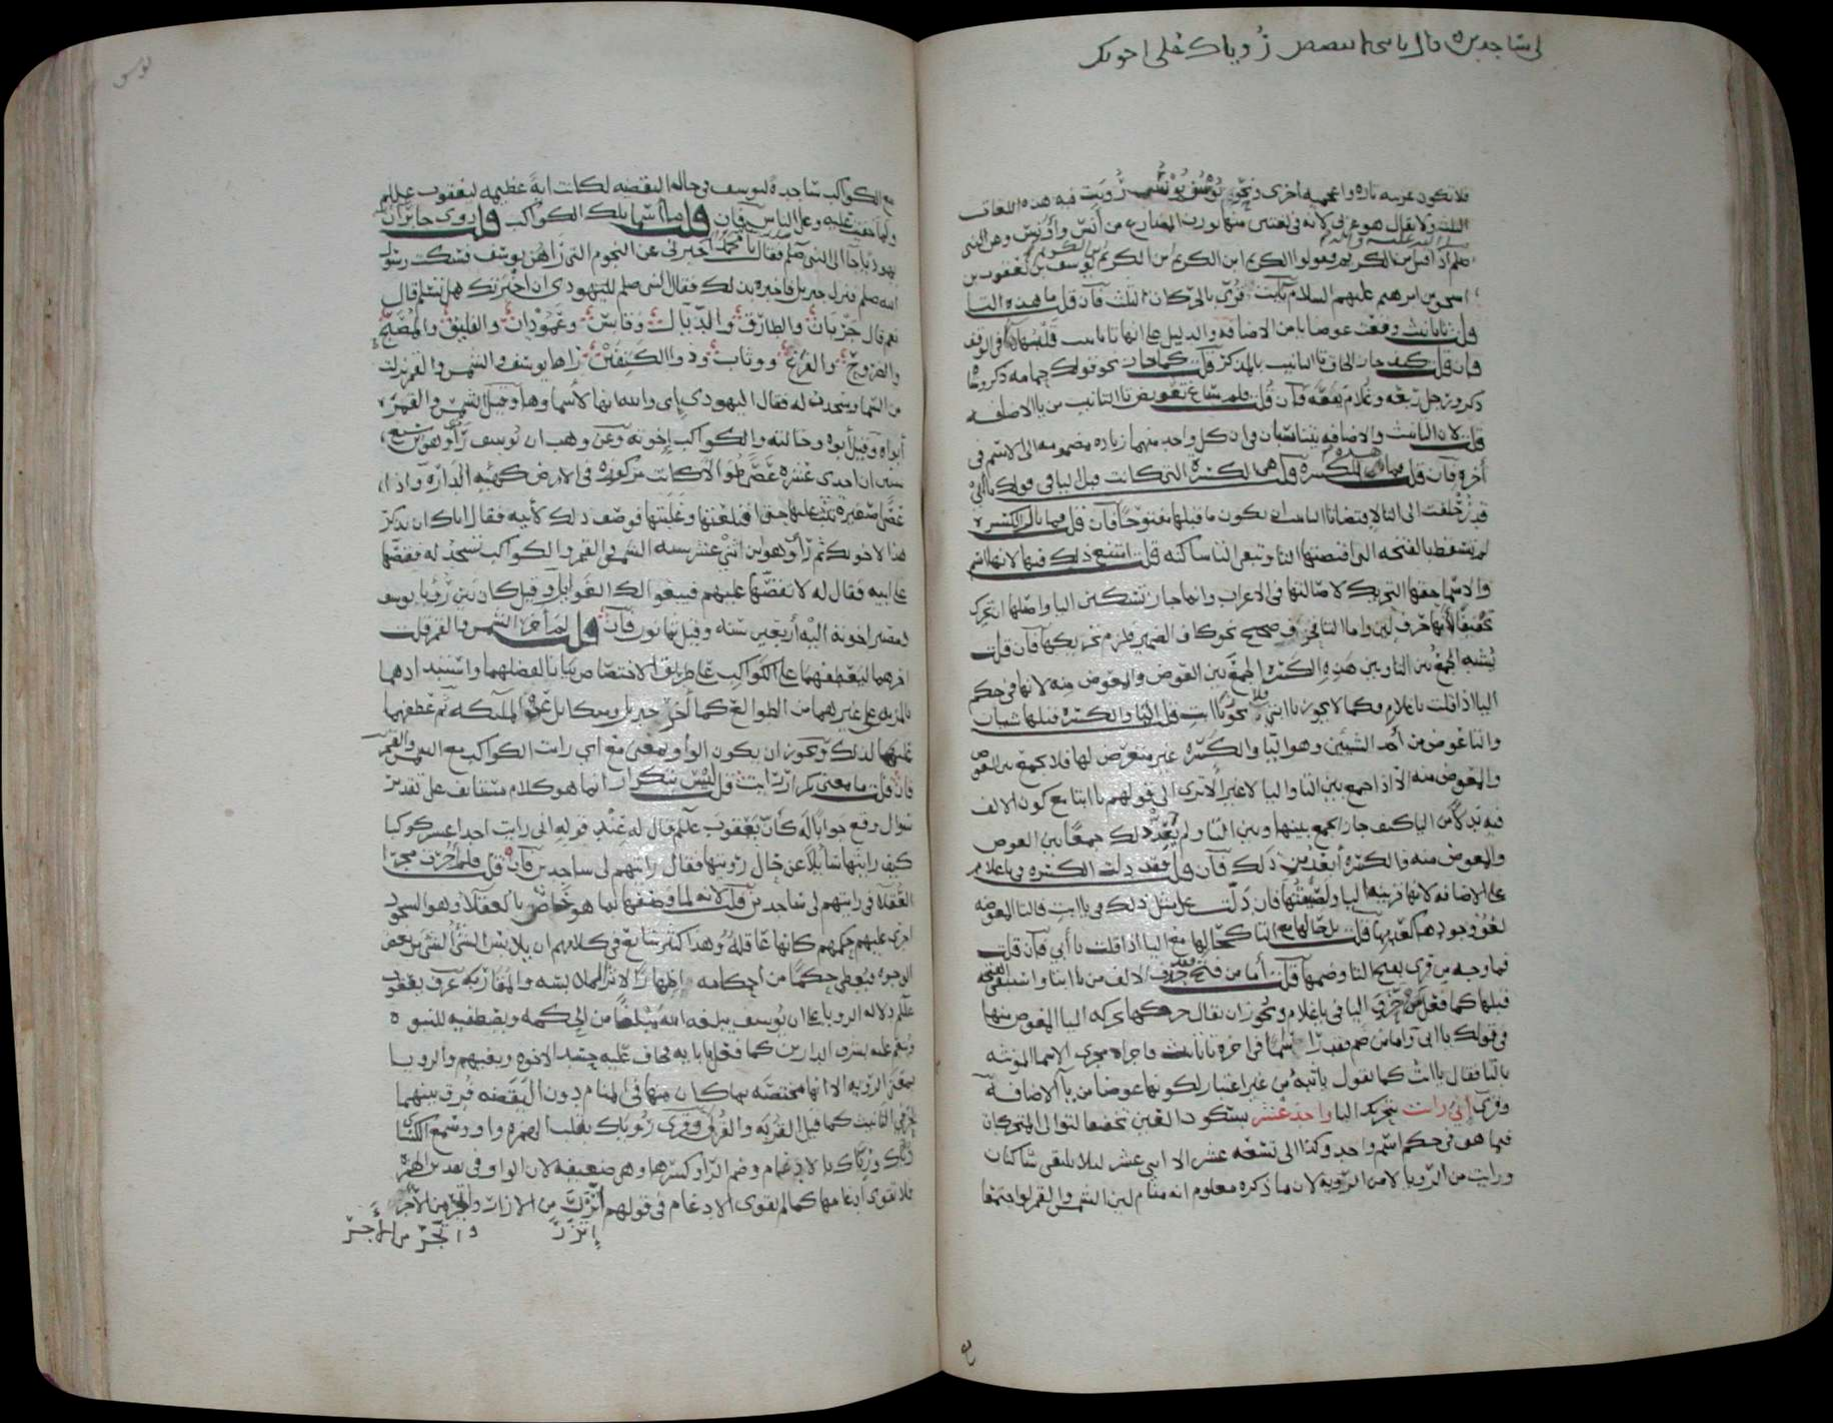 لى ساجدين قال يا بنى لا تقصص رؤياك على اخوتك
فلا تكون عربيه تاره واعجميه اخرى ونحو يوسف يونس رويت فيه هذه اللغات
الثلث ولا يقال هو عربى لانه فى لغتين منها بوزن المضارع من آنس واونس وعن النبى
صلم اذا قيل من الكريم فقولوا الكريم ابن الكريم ابن الكريم ابن الكريم يوسف بن يعقوب بن
اسحق بن ابرهيم عليهم السلام يا ابت قرئ بالحركات الثلث فان قلت ما هذه التا
قلت تا تانيث وقعت عوضا من يا الاضافة والدليل على انها تا تانيث قلبها ها فى الوقف
فان قلت كيف جاز الحاق تا التانيث بالمذكر قلت كما جاز نحو قولك حمامه ذكر وشاة
ذكر ورجل ربعه وغلام يفعه فان قلت فلم ساغ تعويض تا التانيث من يا الاضافه
قلت لان التانيث والاضافه يتناسبان فى ان كل واحد منهما زياده مضمومه الى الاسم فى
آخره فان قلت فما هذه الكسره قلت هى الكسرة التى كانت قبل اليا فى قولك يا ابى
قد زحلقت الى التا لاقتضا تا التانيث ان يكون ما قبلها مفتوحا فان قلت فما بال الكسره
لم تسقط بالفتحه التى اقتضتها التا وتبقى التا ساكنه قلت امتنع ذلك فيها لانها اسم
والاسما حقها التحريك لاصالتها فى الاعراب وانما جاز تسكين اليا واصلها التحرك
تخفيفا لانها حرف لين واما التا فحرف صحيح نحو كاف الضمير فلزم تحريكها فان قلت
يشبه الجمع بين التا وبين هذه الكسره الجمع بين العوض والمعوض منه لانها فى حكم
اليا اذا قلت يا غلام فكما لا يجوز يا ابتى لا يجوز يا ابت قلت اليا والكسره قبلها شيان
والتا عوض من أحد الشيئين وهو اليا والكسره غير متعرض لها فلا يجمع بين العوض
والمعوض منه الا اذا جمع بين التا واليا لا غير ألا ترى الى قولهم يا ابتا مع كون الالف
فيه بدلا من اليا كيف جاز الجمع بينها وبين التا ولم يعد ذلك جمعا بين العوض
والمعوض منه فالكسره أبعد من ذلك فان قلت فقد دلت الكسره فى يا غلام
على الاضافه لانها قرينة اليا ولصيقتها فان دلت على مثل ذلك فى يا ابت فالتا المعوضه
لغو وجودها كعدمها قلت بل حالها مع التا كحالها مع اليا اذا قلت يا أبى فان قلت
فما وجه من قرئ بفتح التا وضمها قلت أما من فتح فقد حذف الالف من يا ابتا واستبقى الفتحه
قبلها كما فعل من حذف اليا فى يا غلام ويجوز ان يقال حركها بحركه اليا المعوض منها
فى قولك يا ابى واما من ضم فقد رأى اسما فى اخره تا تانيث فاجراه مجرى الاسما المونثه
بالتا فقال يا ابت كما تقول يا ثبة من غير اعتبار لكونها عوضا من يا الاضافة
وقرئ إنى رايت بتحريك اليا واحد عشر بسكون العين تخفيفا لتوالى المتحركات
فيما هو فى حكم اسم واحد وكذا الى تسعه عشر الا اثنى عشر ليلا يلتقى ساكنان
ورايت من الرويا لا من الروية لان ما ذكره معلوم انه منام لان الشمس والقمر لو اجتمعا
يوسف
مع الكواكب ساجدة ليوسف فى حال اليقضه لكانت اية عظيمه ليعقوب علم
ولما خفيت عليه وعلى الناس فان قلت ما أسما تلك الكواكب قلت روى جابر ان
يهوديا جا الى النبى صلم فقال يا محمد أخبرنى عن النجوم التى رآهن يوسف فسكت رسول
الله صلم فنزل جبريل فاخبره بذلك فقال النبى صلم لليهودى ان اخبرتك هل تسلم قال
نعم قال جربان والطارق والذيال وقابس وعمودان والفليق والمصبح
والضروح والفرغ ووثاب وذو الكتفين رآها يوسف والشمس والقمر نزلت
من السما وسجدت له فقال اليهودى إى والله انها لأسماوها وقيل الشمس والقمر
أبواه وقيل أبوه وخالته والكواكب اخوته وعن وهب ان يوسف رأى وهو ابن سبع
سنين ان احدى عشرة عصا طوالا كانت مركوزه فى الارض كهيه الدارة واذا
عصا صغيرة تثب عليها حتى اقتلعتها وغلبتها فوصف ذلك لأبيه فقال اياك ان تذكر
هذا لاخوتك ثم رأى وهو ابن اثنى عشر سنه الشمس والقمر والكواكب تسجد له فقصها
على ابيه فقال له لا تقصها عليهم فيبغوا لك الغوايل وقيل كان بين رؤيا يوسف
ومصير اخوته اليه أربعين سنه وقيل ثمانون فان قلت لم أخر الشمس والقمر قلت
اخرهما ليعطفهما على الكواكب على طريق الاختصاص بيانا لفضلهما واستبدادهما
بالمزيه على غيرهما من الطوالع كما أخر جبريل وميكايل عن الملائكه ثم عطفهما
عليها لذلك ويجوز ان يكون الواو بمعنى مع اى رايت الكواكب مع الشمس والقمر
فان قلت ما معنى تكرار رايت قلت ليس بتكرار انما هو كلام مستانف على تقدير
سوال وقع جوابا له كأن يعقوب علم قال له عند قوله انى رايت احد عشر كوكبا
كيف رايتها سايلا عن حال رؤيتها فقال رايتهم لى ساجدين فان قلت فلم أجريت مجرى
العقلاء فى رايتهم لى ساجدين قلت لانه لما وصفها بما هو خاص بالعقلا وهو السجود
اجرى عليهم حكمهم كانها عاقلة وهذا كثير شايع فى كلامهم ان يلابس الشئ الشئ من بعض
الوجوه فيعطى حكما من احكامه اظهارا لاثر الملابسه والمقاربه عرف يعقوب
علم دلاله الرويا على ان يوسف يبلغه الله مبلغا من الحكمه ويصطفيه للنبوه
وينعم عليه بشرف الدارين كما فعل بابايه فخاف عليه حسد الاخوه وبغيهم والرويا
بمعنى الرويه الا انها مختصه بما كان منها فى المنام دون اليقضه فرق بينهما
بحرفى التانيث كما قيل القربه والقربى وقرئ روياك بقلب الهمزه واوا وسمع الكسائى
ريّاك وريّاك بالادغام وضم الرا وكسرها وهى ضعيفه لان الواو فى تقدير الهمزة
فلا يقوى ادغامها كما لم يقوى الادغام فى قولهم اتزر من الازار واتجر من الاجر
إتزر
واتجر من الأجر